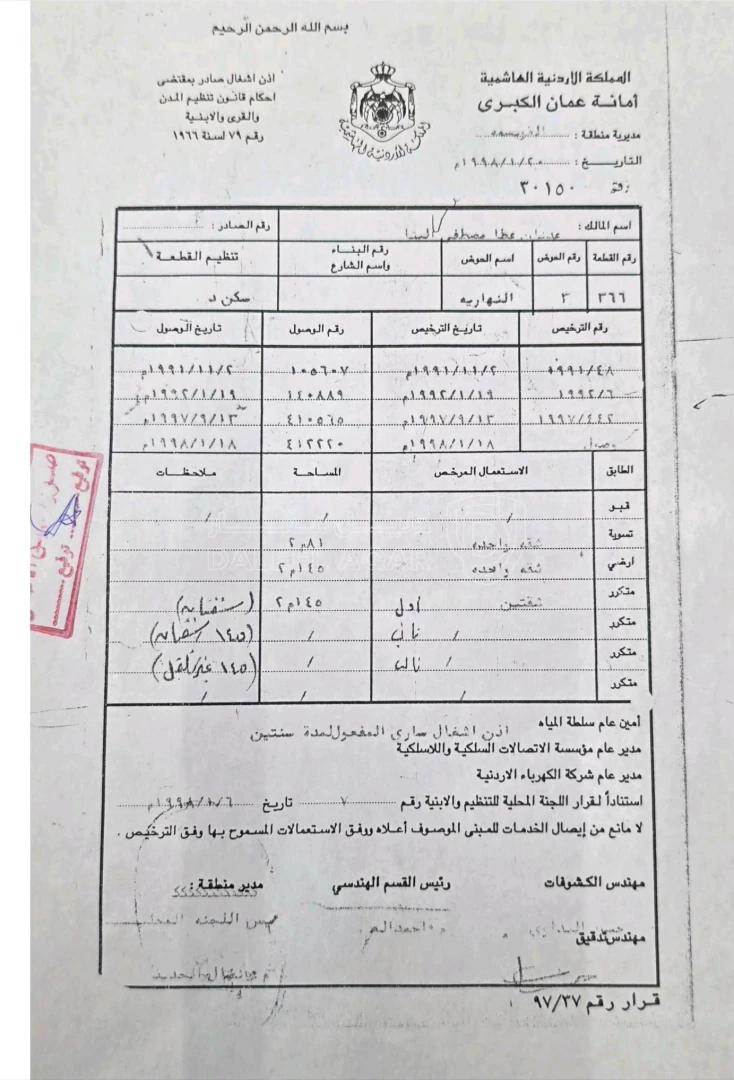 بسم الله الرحمن الرحيم
المملكة الاردنية الهاشمية
أمانة عمان الكبرى
مديرية منطقة :
التاريـــخ : ١٩٩٨/١/٢٠م
رقم ٣٠١٥٠
اذن اشغال صادر بمقتضى
احكام قانون تنظيم المدن
والقرى والابنية
رقم ٧٩ لسنة ١٩٦٦
اسم المالك : عدنان عطا مصطفى البنا رقم الصادر :
رقم القطعة رقم الحوض اسم الحوض رقم البناء واسم الشارع تنظيم القطعة
٣٦٦ ٣ النهاريه سكن د
رقم الترخيص تاريخ الترخيص رقم الوصول تاريخ الوصول
١٩٩١/٤٨ ١٩٩١/١١/٢م ١٠٥٦٠٧ ١٩٩١/١١/٢م
١٩٩٢/٦ ١٩٩٢/١/١٩م ١٤٠٨٨٩ ١٩٩٢/١/١٩م
١٩٩٧/٤٤٢ ١٩٩٧/٩/١٣م ٤١٠٥٦٥ ١٩٩٧/٩/١٣م
١٩٩٨/١/١٨م ٤١٢٢٢٠ ١٩٩٨/١/١٨م
الطابق الاستعمال المرخص المساحة ملاحظات
قبو / / /
تسوية شقه واحده ٨١م٢
أرضي شقه واحده ١٤٥م٢
متكرر شقتين اول ١٤٥م٢
متكرر / /
متكرر / /
متكرر / / /
أمين عام سلطة المياه
اذن اشغال ساري المفعول لمدة سنتين
مدير عام مؤسسة الاتصالات السلكية واللاسلكية
مدير عام شركة الكهرباء الاردنية
استناداً لقرار اللجنة المحلية للتنظيم والابنية رقم ٧ تاريخ ١٩٩٨/١/٦م
لا مانع من إيصال الخدمات للمبنى الموصوف أعلاه ووفق الاستعمالات المسموح بها وفق الترخيص .
مهندس الكشوفات رئيس القسم الهندسي مدير منطقة :
مهندس تدقيق
قرار رقم ٩٧/٣٧